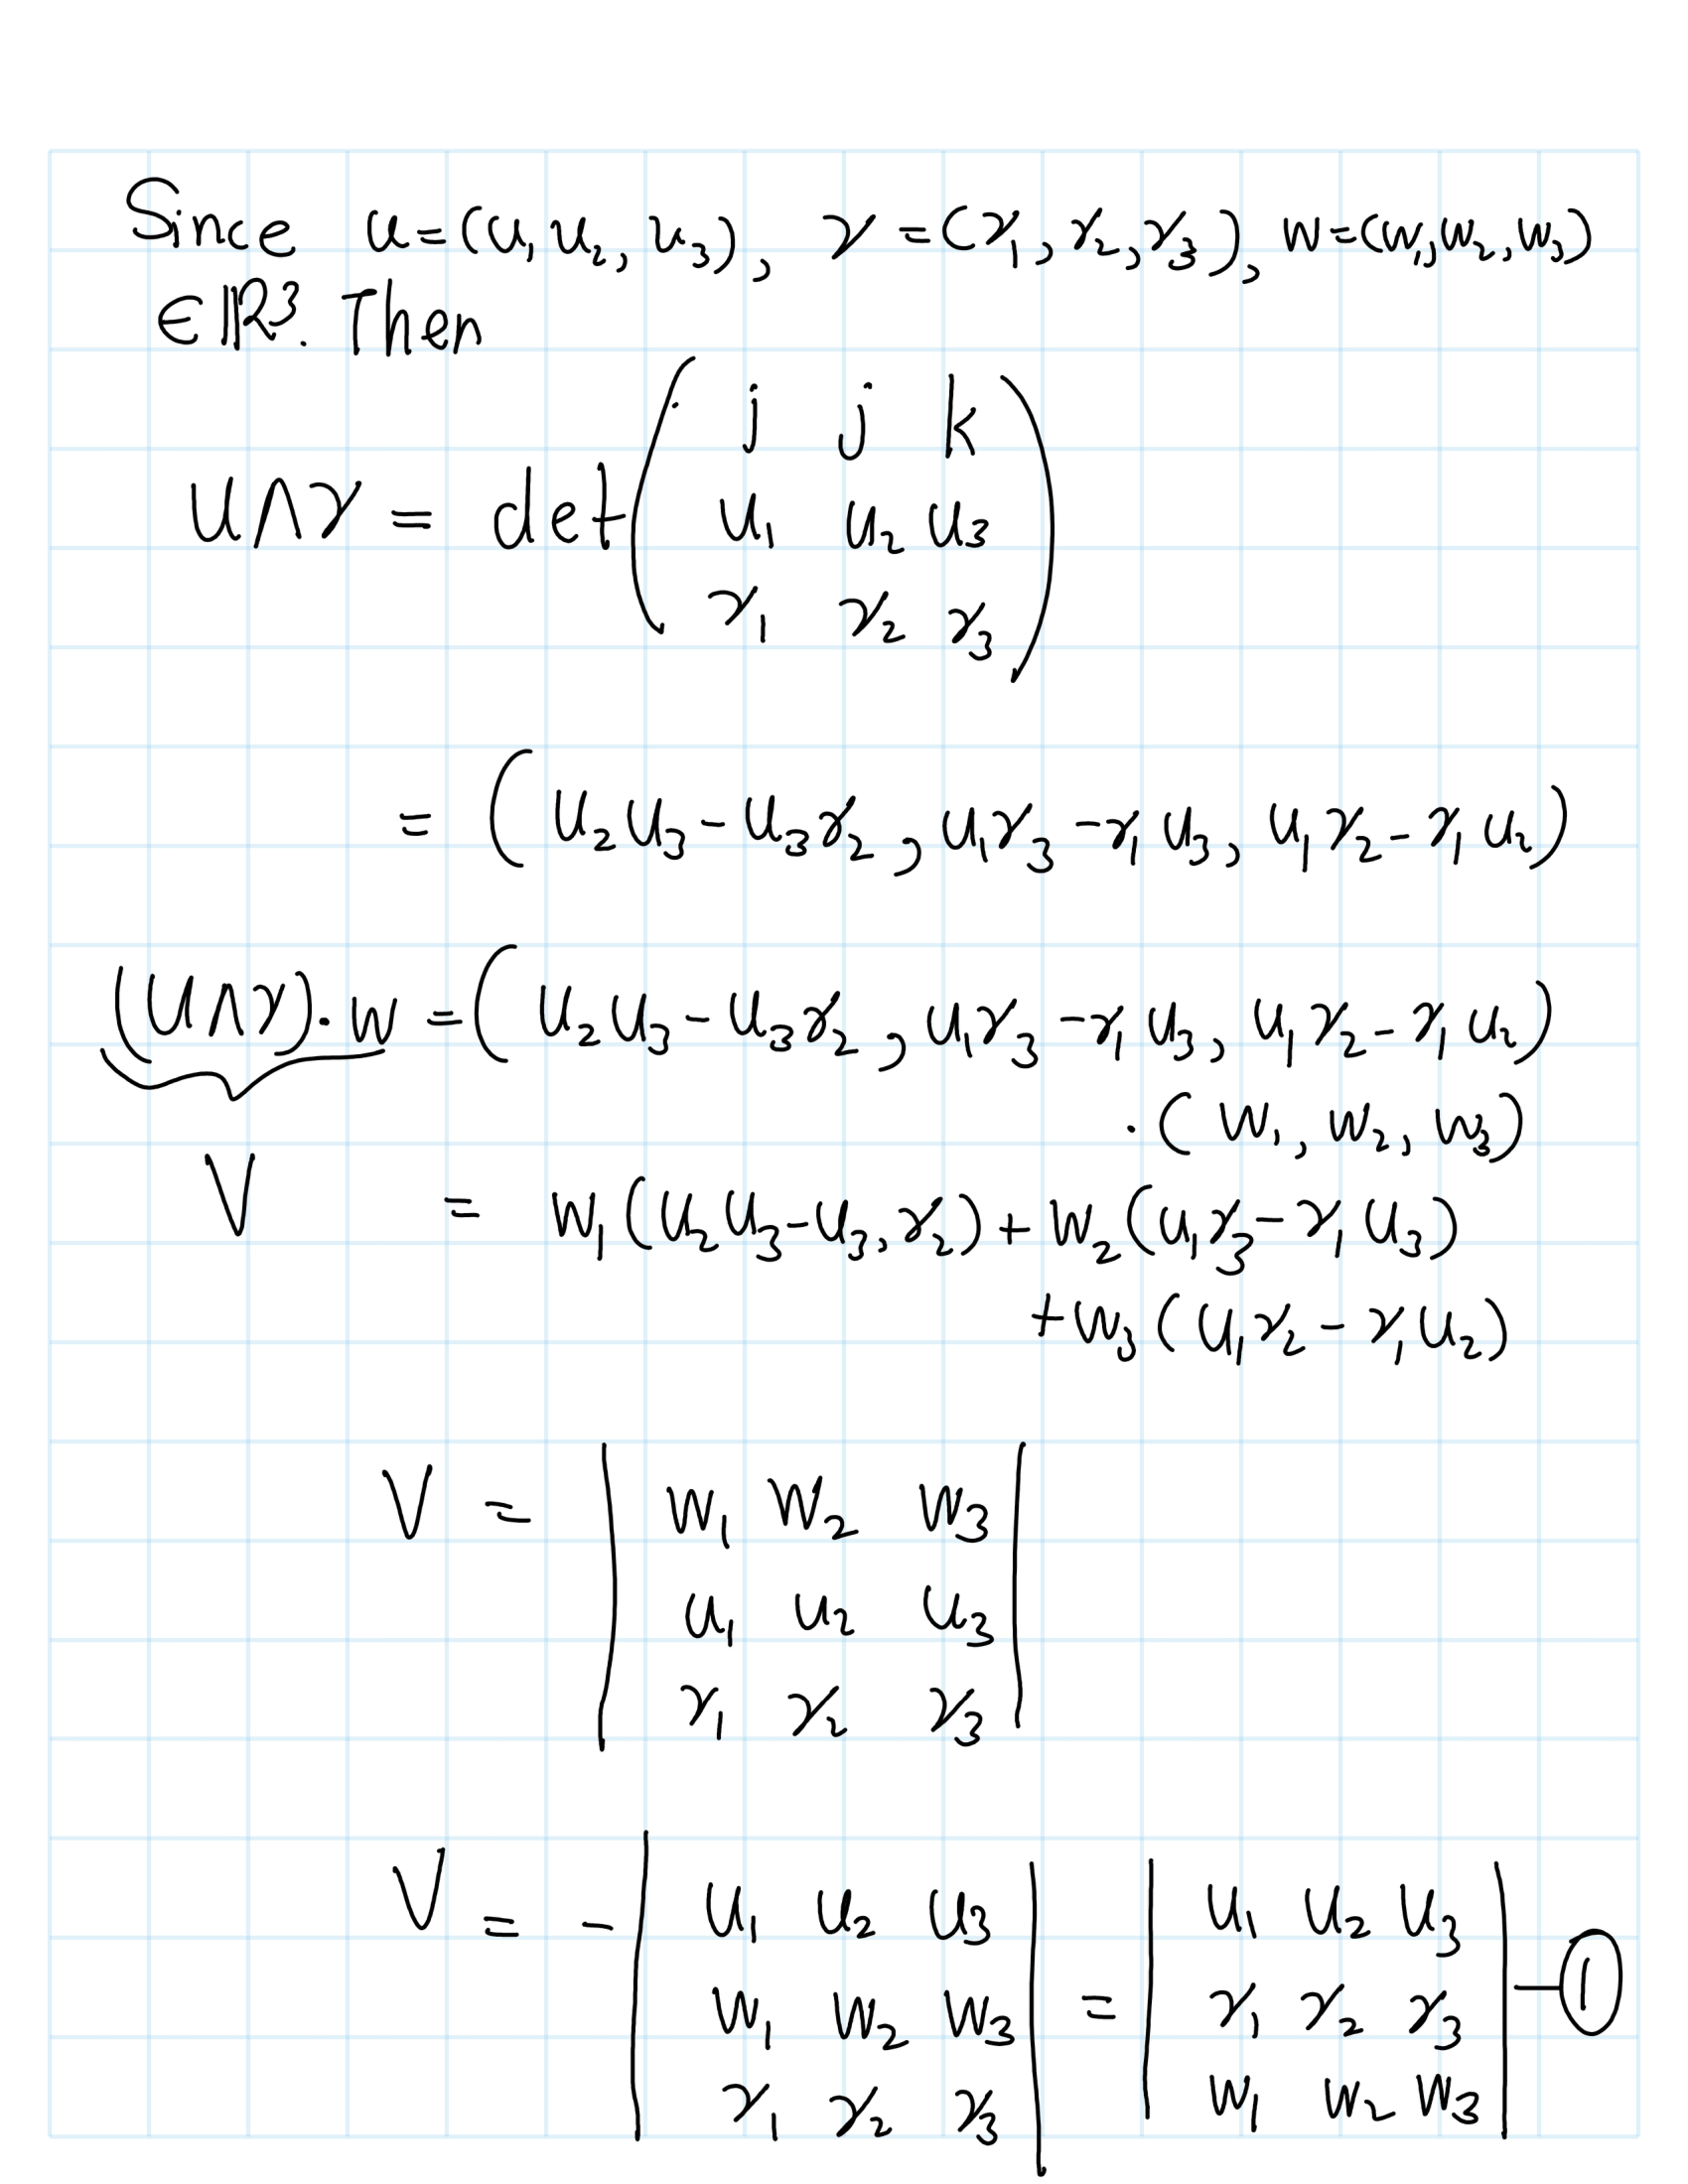 Since u=(u₁,u₂,u₃), γ=(γ₁,γ₂,γ₃), W=(W₁,W₂,W₃)
∈ℝ³. Then
U∧γ = det( j j k
u₁ u₂ u₃
γ₁ γ₂ γ₃ )
= (U₂U₃-U₃γ₂, U₁γ₃-γ₁U₃, U₁γ₂-γ₁U₂)
(U∧γ)·W = (U₂U₃-U₃γ₂, U₁γ₃-γ₁U₃, U₁γ₂-γ₁U₂)
·(W₁, W₂, W₃)
V = W₁(U₂U₃-U₃,γ₂)+W₂(U₁γ₃-γ₁U₃)
+W₃(U₁γ₂-γ₁U₂)
V = | W₁ W₂ W₃
u₁ u₂ u₃
γ₁ γ₂ γ₃ |
V = - | U₁ U₂ U₃ | = | U₁ U₂ U₃ | -①
W₁ W₂ W₃ γ₁ γ₂ γ₃
γ₁ γ₂ γ₃ W₁ W₂ W₃